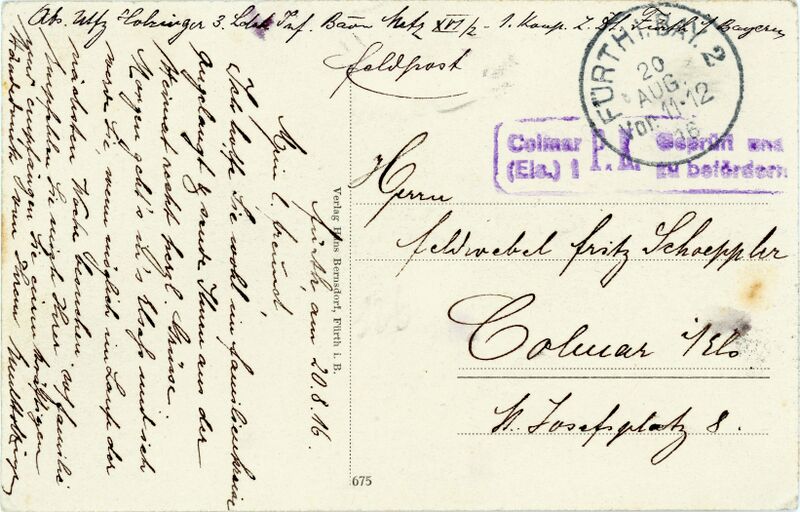 Abs. Utffz Holzinger 3. Ldst. Inf. Baon Metz XVI/2 - 1. Komp. Z. Zt. Fürth i/Bayern
Feldpost
FÜRTH I. BAY. 2
20
AUG.
Vor. 11-12
16
Colmar P.K. Geprüft und
(Els.) 1 zu befördern
Herrn
Feldwebel Fritz Schoeppler
Colmar i/Els
St. Josefsplatz 8.
Verlag Hans Bernsdorf, Fürth i. B.
675
Fürth am 20.8.16.
Mein l. Freund
Ich hoffe Sie wohl im Familienkreise
angelangt & sende Ihnen aus der
Heimat recht herzl. Grüsse.
Morgen geht's in's Elsass und ich
werde Sie, wenn möglich im Lauf der
nächsten Woche besuchen.
Empfehlen Sie mich Ihrer w. Familie
und empfangen Sie einen kräftigen
Händedruck Ihrem Ihrem Holzinger